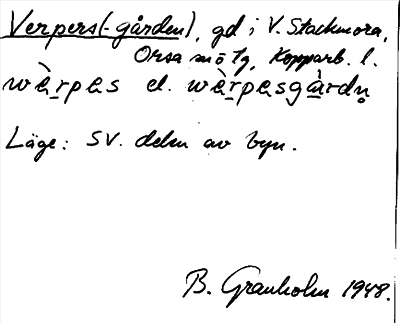 Verpers(-gården), gd i V. Stackmora,
Orsa sn o tg, Kopparb. l.
wὲrpes el. wὲrpesgàrdn̥
Läge: SV. delen av byn.
B. Granholm 1948.